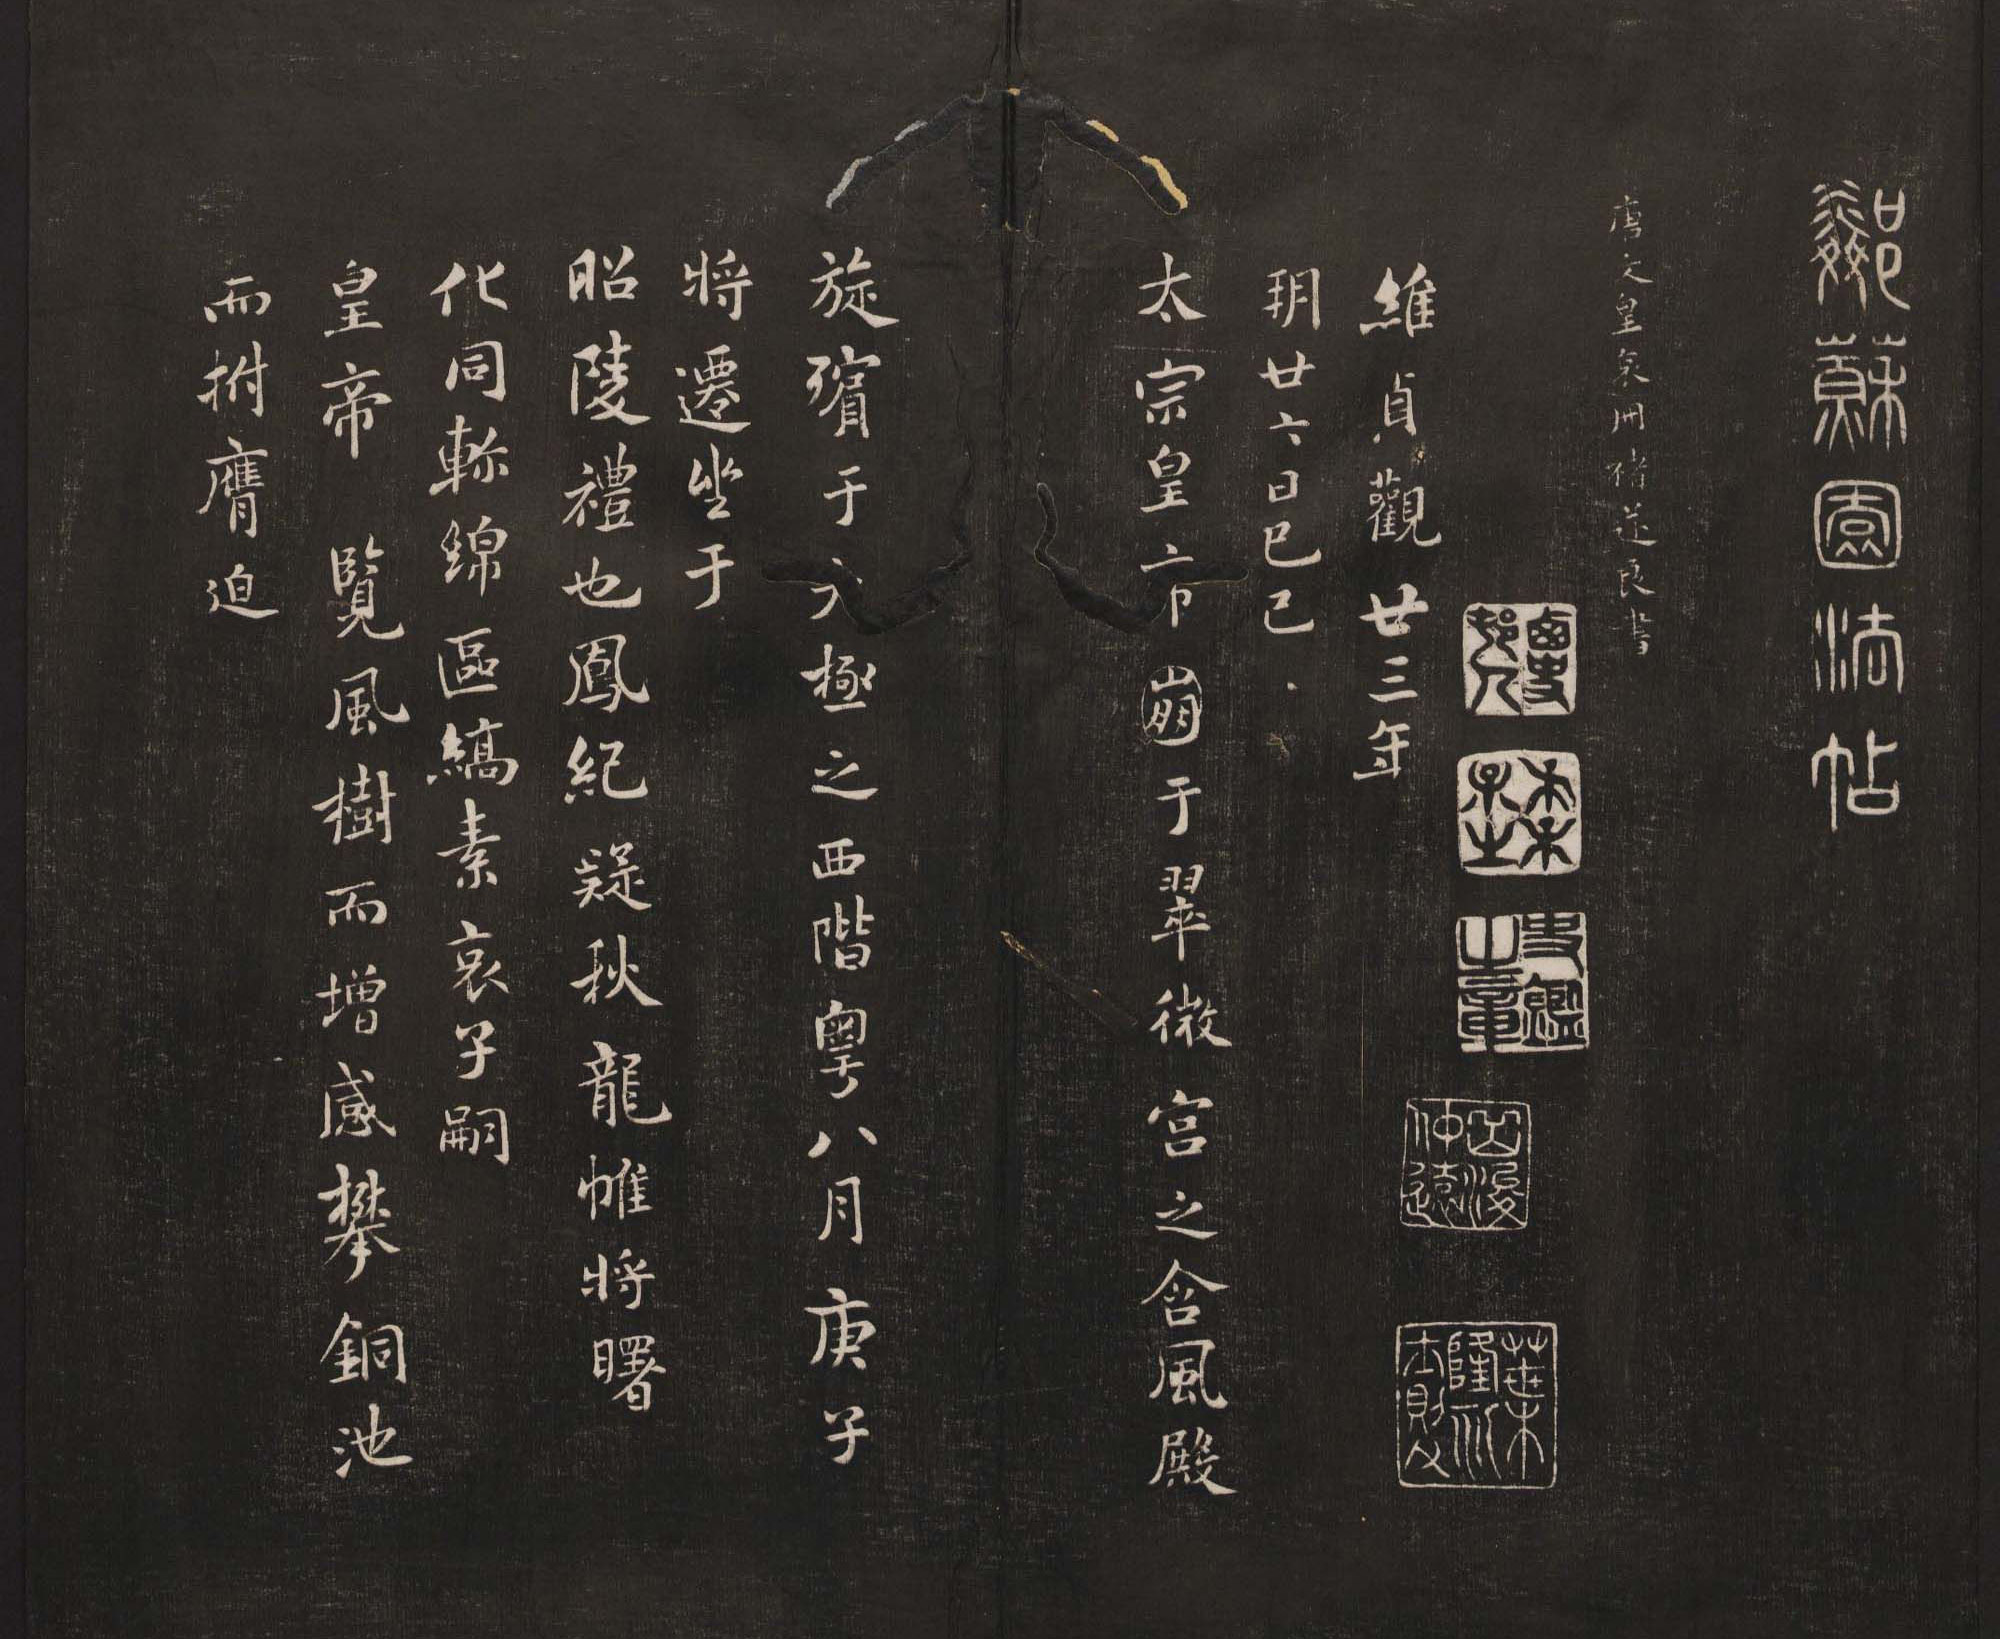 鄰蘇園法帖
唐文皇哀冊褚遂良書
維貞觀廿三年
玥廿六日巳己
太宗皇帝崩于翠微宮之含風殿
旋殯于六極之西階粵八月庚子
將遷坐于
昭陵禮也鳳紀疑秋龍帷將曙
化同軫綿區縞素哀子嗣
皇帝覽風樹而增感攀銅池
而拊膺迫